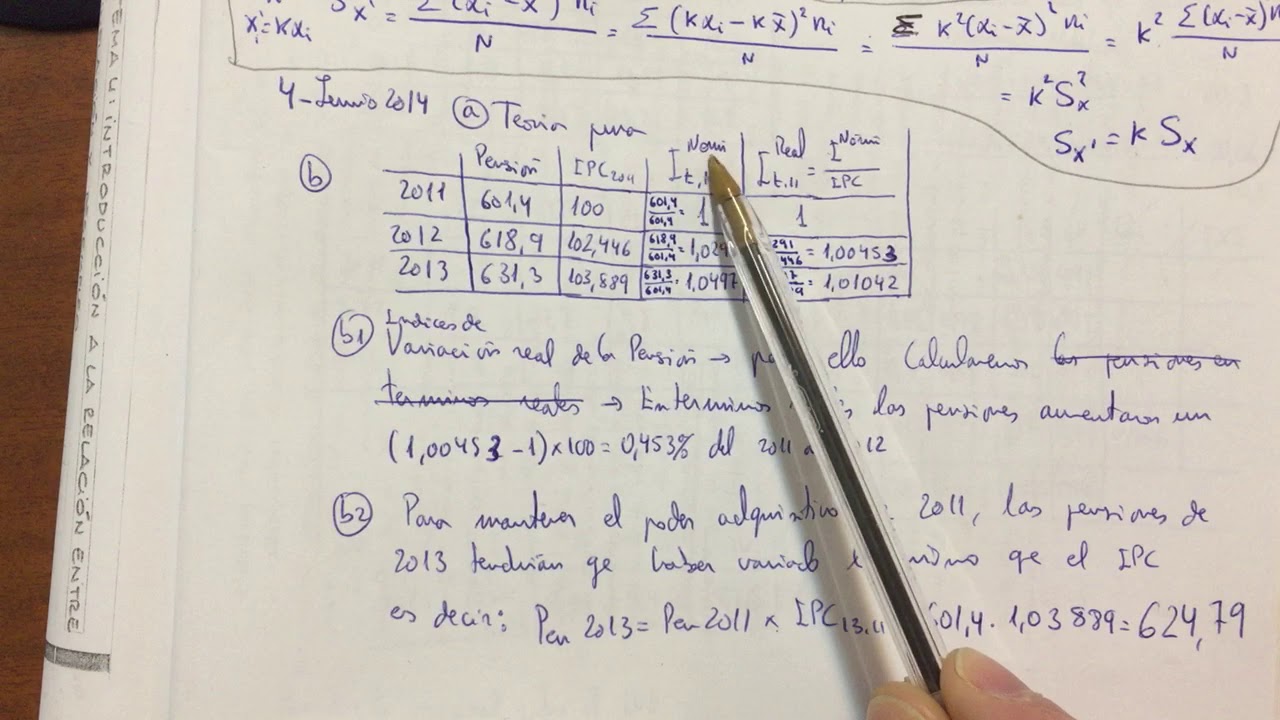 Sx' = Σ(xi - x̄)² ni / N = Σ(Kxi - Kx̄)² ni / N = Σ K²(xi - x̄)² ni / N = K² · Σ(xi - x̄)² n / N
x'i = Kxi
= K² Sx²
Sx' = K Sx
4-Junio 2014 ⓐ Teoría pura
ⓑ Pensión IPC2011 I Nomi t,11 I Real t,11 = I Nomi / IPC
2011 601,4 100 601,4/601,4 = 1 1
2012 618,9 102,446 618,9/601,4 = 1,029 291/446 = 1,00453
2013 631,3 103,889 631,3/601,4 = 1,0497 = 1,01042
b1) Indices de
Variación real de la Pensión → ello Calcularemos las pensiones en
terminos reales → En terminos las pensiones aumentaron un
(1,00453 - 1) × 100 = 0,453% del 2011 a 12
b2) Para mantener el poder adquisitivo 2011, las pensiones de
2013 tendrían qe haber variado mismo qe el IPC
es decir: Pen 2013 = Pen 2011 × IPC13.11 601,4 · 1,03889 = 624,79
TEMA 4: INTRODUCCIÓN A LA RELACIÓN ENTRE